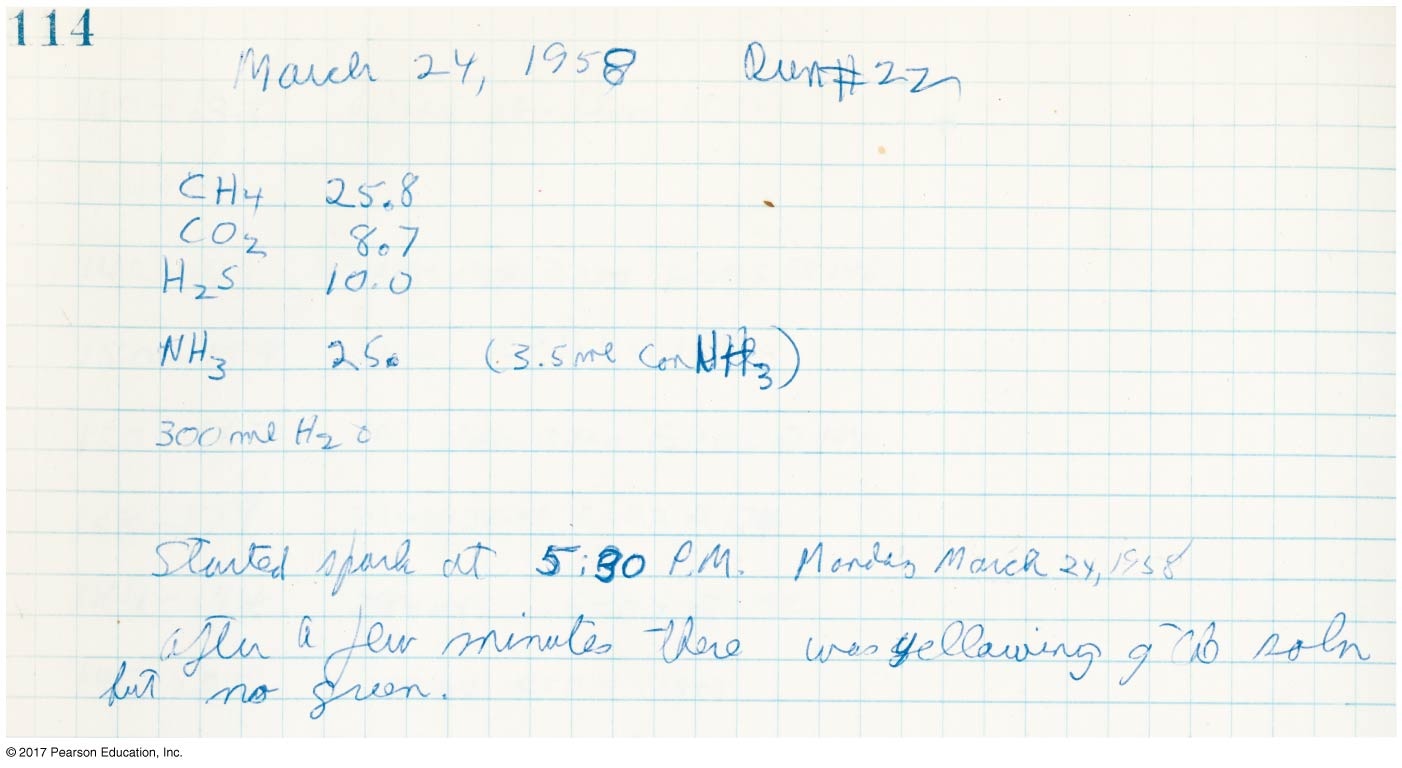 114
March 24, 1958 Run #22
CH4 25.8
CO2 8.7
H2S 10.0
NH3 25. (3.5 ml Con NH3)
300 ml H2O
Started spark at 5:30 P.M. Monday March 24, 1958
after a few minutes there was yellowing of the soln
but no green.
© 2017 Pearson Education, Inc.